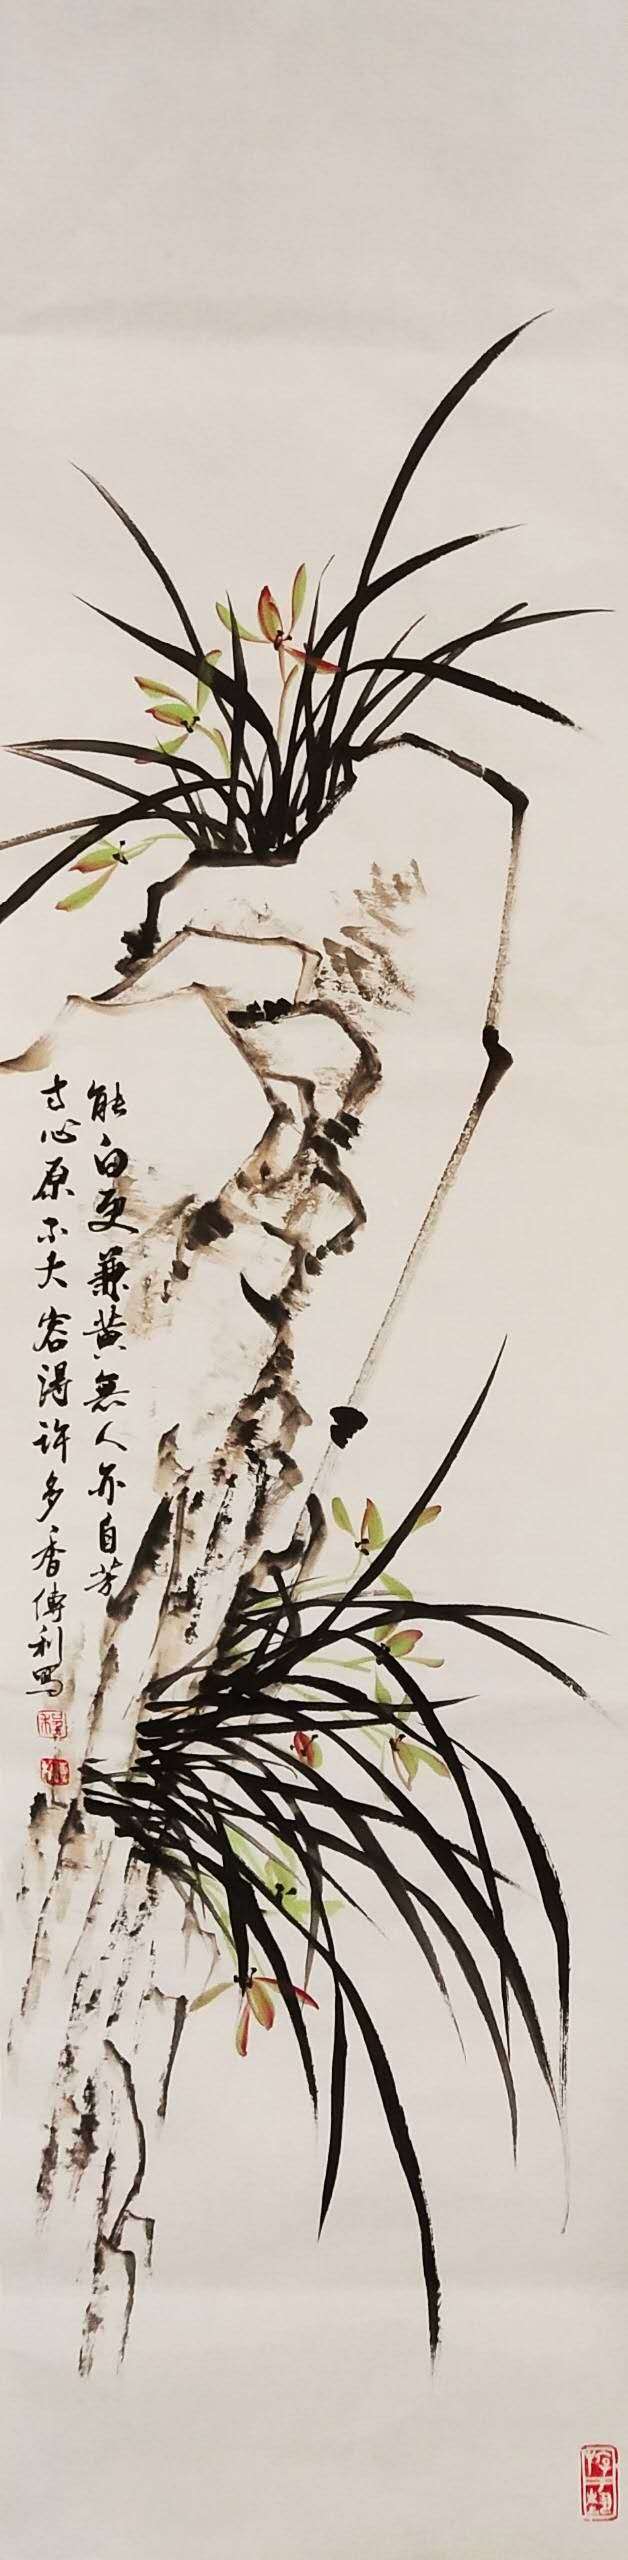 能白更兼黄無人亦自芳
寸心原不大容得许多香傅利写